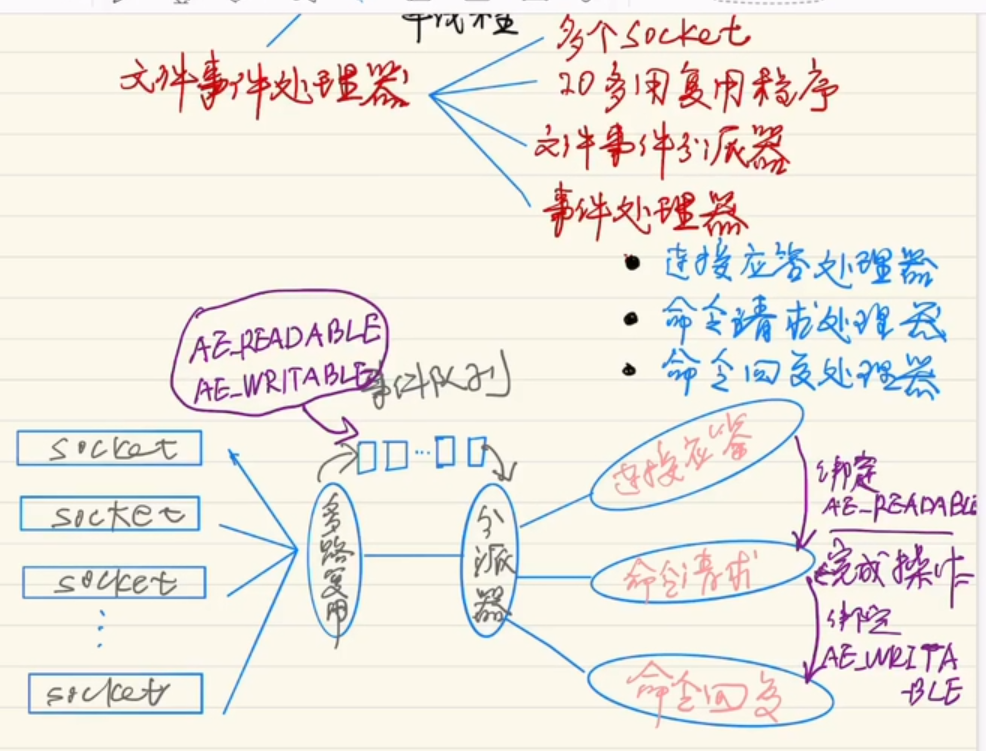 单线程
多个socket
文件事件处理器
IO多用复用程序
文件事件分派器
事件处理器
连接应答处理器
命令请求处理器
命令回复处理器
AE_READABLE
AE_WRITABLE
事件队列
socket
socket
socket
socket
多路复用
分派器
连接应答
命令请求
命令回复
绑定
AE_READABLE
完成操作
绑定
AE_WRITA
-BLE